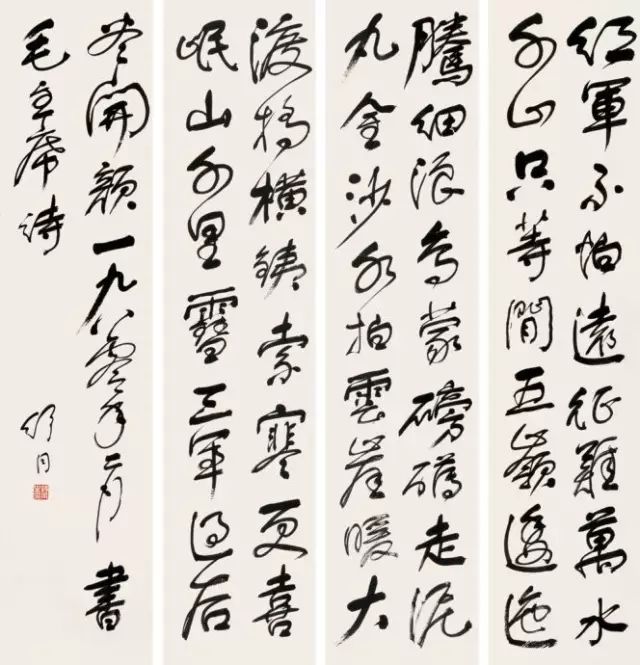 紅軍不怕遠征難萬水
千山只等閒五嶺逶迤
騰細浪烏蒙磅礴走泥
丸金沙水拍雲崖暖大
渡橋橫鐵索寒更喜
岷山千里雪三軍過后
尽開顏一九八零年二月書
毛主席詩
舒同